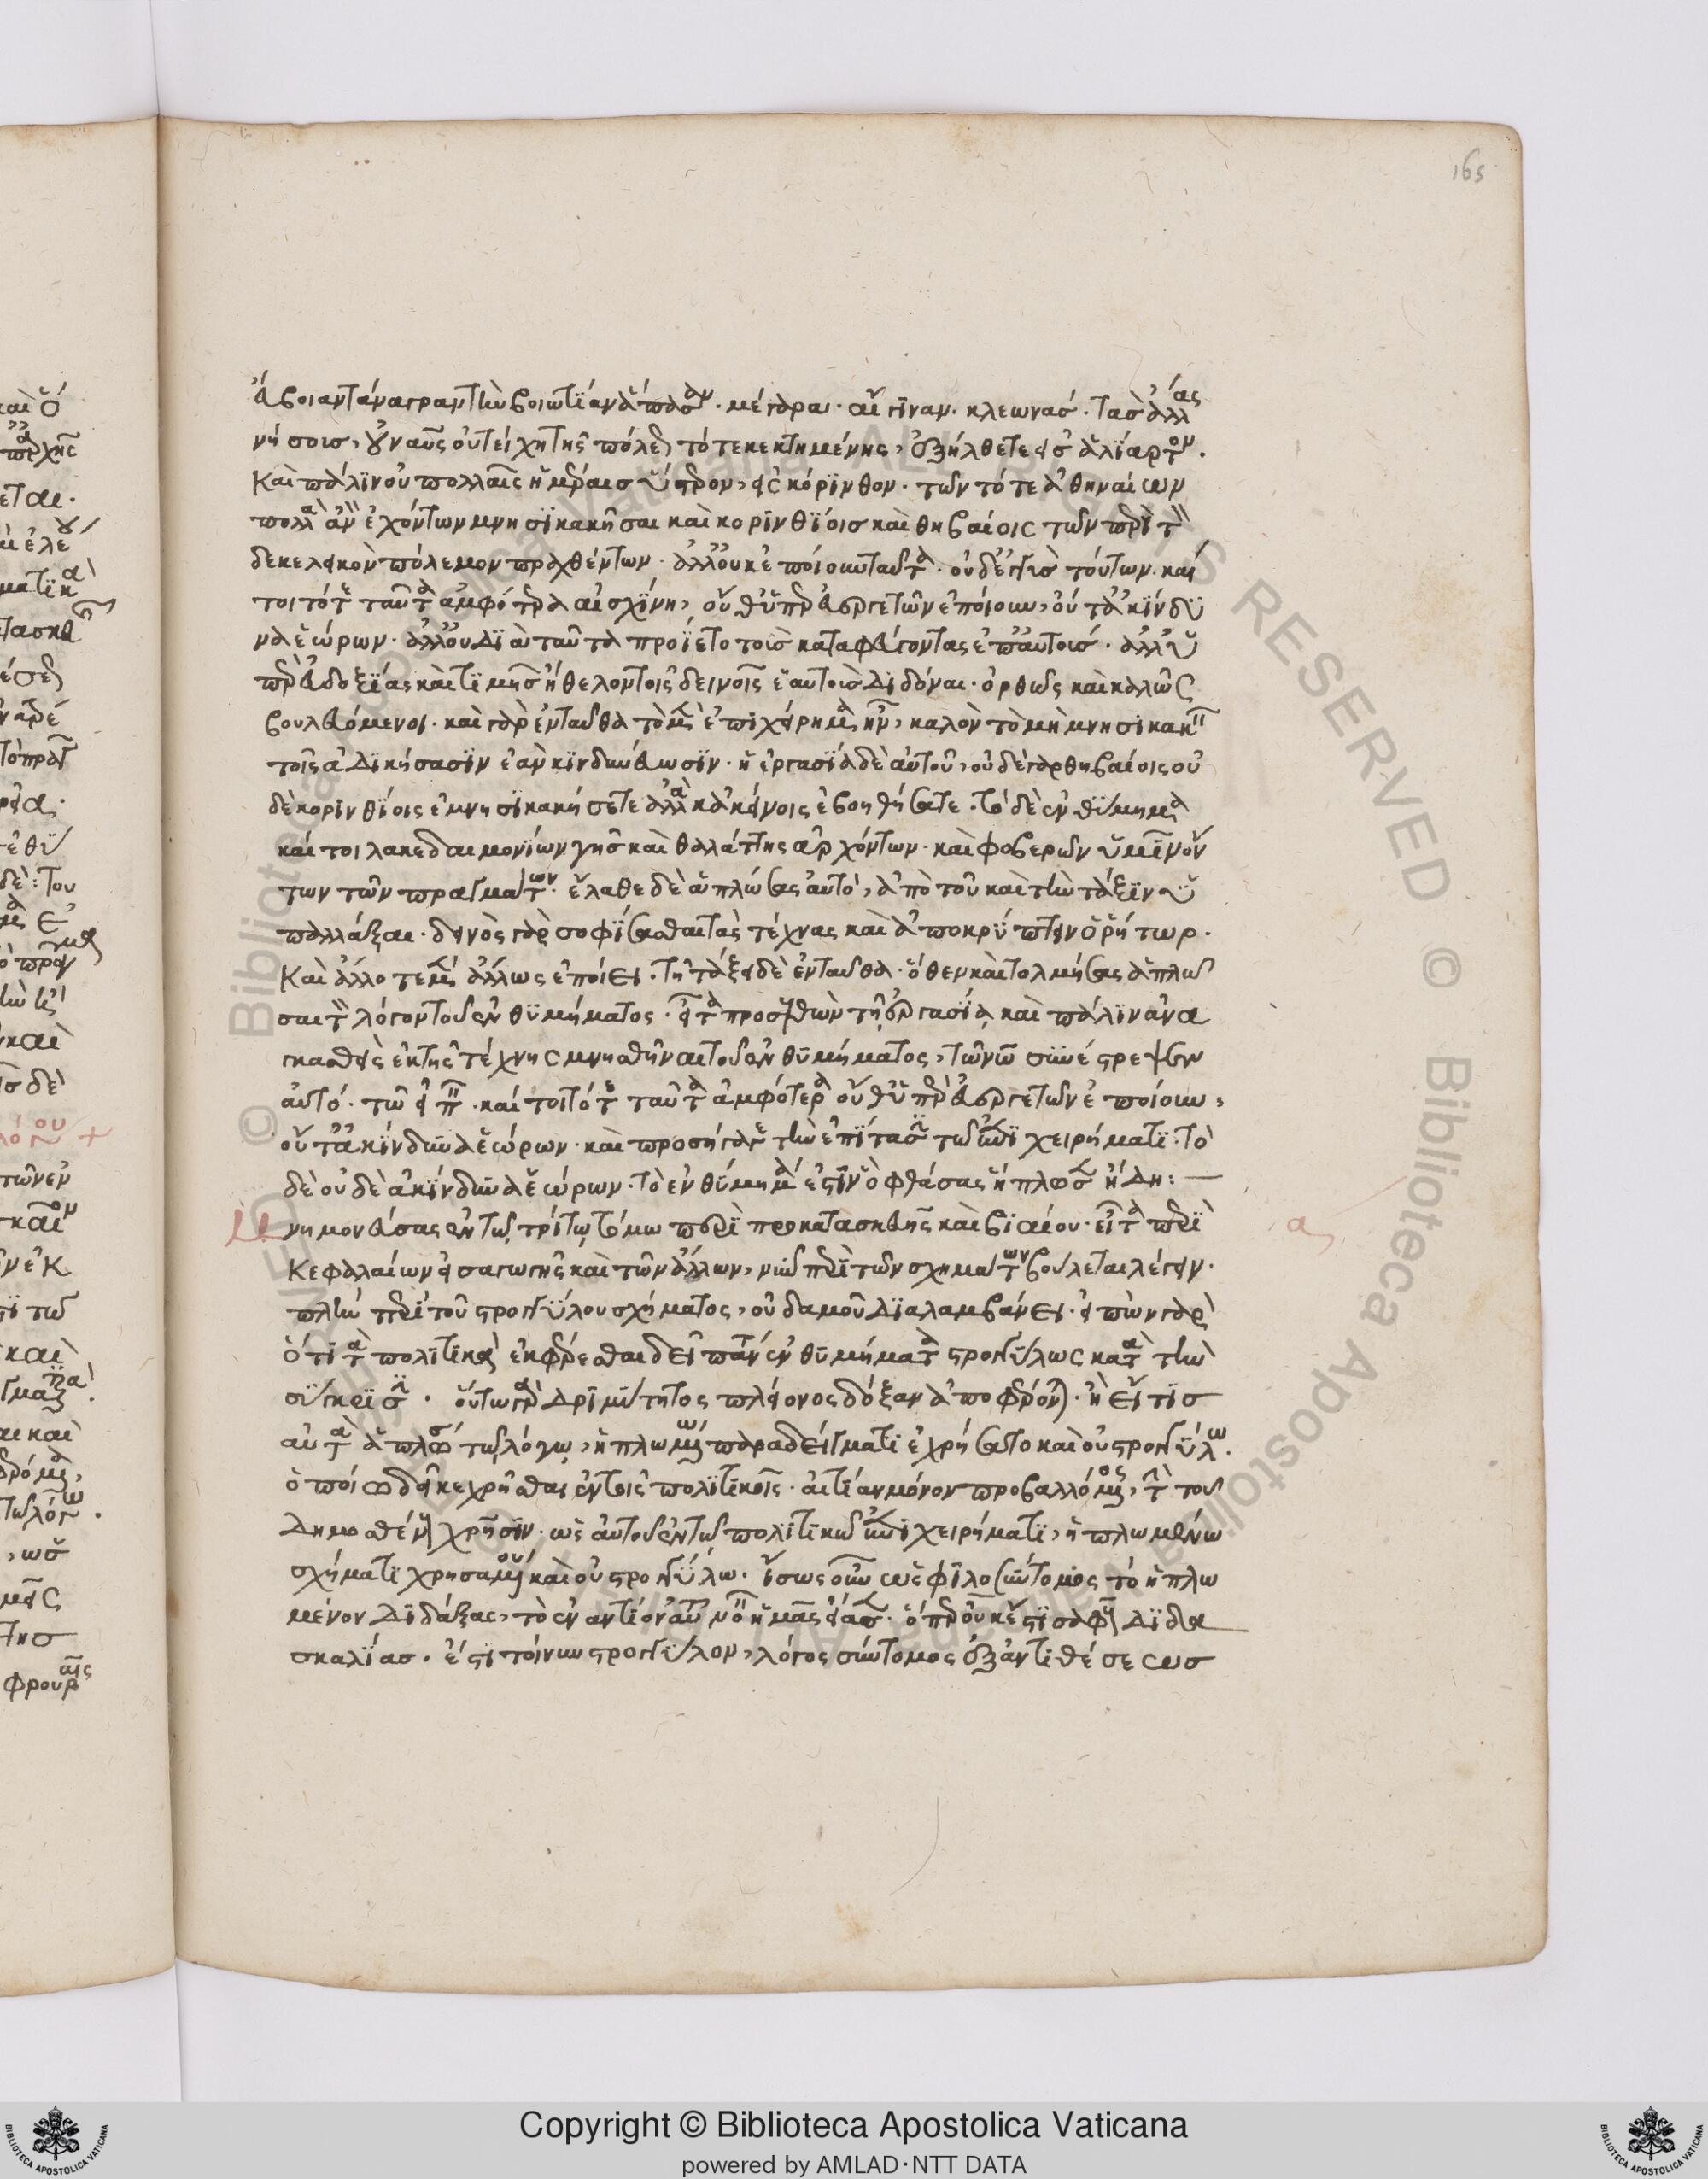 165
Εὔβοιαν τάναγραν τὴν βοιωτίαν ἅπασαν · μέγαρα · αἴγιναν · κλεωνάς · τὰς ἄλλας
νήσους, οὐ ναῦς οὐ τείχη τῆς πόλεως τότε κεκτημένης, ἐξήλθετε εἰς ἁλίαρτον ·
καὶ πάλιν οὐ πολλαῖς ἡμέραις ὕστερον, εἰς κόρινθον · τῶν τότε ἀθηναίων
πολλὰ ἂν ἐχόντων μνησικακῆσαι καὶ κορινθίοις καὶ θηβαίοις τῶν περὶ τὸν
δεκελεικὸν πόλεμον πραχθέντων · ἀλλ' οὐκ ἐποίουν ταῦτα · οὐδ' ἐγγὺς τούτων · καί
τοι τότε ταῦτα ἀμφότερα αἰσχίνη, οὔθ' ὑπὲρ εὐεργετῶν ἐποίουν, οὔτ' ἀκίνδυ
να ἑώρων · ἀλλ' οὐ διὰ ταῦτα προΐεντο τοὺς καταφεύγοντας ἐπ' αὐτούς · ἀλλ' ὑ
πὲρ εὐδοξίας καὶ τιμῆς ἤθελον τοῖς δεινοῖς ἑαυτοὺς διδόναι · ὀρθῶς καὶ καλῶς
βουλευόμενοι · καὶ γὰρ ἐνταῦθα τὸ μὲν ἐπιχείρημα ἦν, καλὸν τὸ μὴ μνησικακεῖν
τοῖς ἀδικήσασιν ἐὰν κινδυνεύωσιν · ἡ ἐργασία δὲ αὐτοῦ, οὐδὲ γὰρ θηβαίοις οὐ
δὲ κορινθίοις ἐμνησικακήσατε ἀλλὰ κἀκείνοις ἐβοηθήσατε · τὸ δὲ ἐνθύμημα
καίτοι λακεδαιμονίων γῆς καὶ θαλάττης ἀρχόντων · καὶ φοβερῶν ὑμῖν ὄν
των τῶν πραγμάτων · ἔλαθε δὲ ἁπλώσας αὐτό, ἀπὸ τοῦ καὶ τὴν τάξιν ὑ
παλλάξαι · δεινὸς γὰρ σοφίσασθαι τὰς τέχνας καὶ ἀποκρύπτειν ὁ ῥήτωρ ·
καὶ ἄλλοτε μὲν ἄλλως ἐποίει · τῇ τάξει δὲ ἐνταῦθα · ὅθεν καὶ τολμήσας ἁπλῶ
σαι τὸν λόγον τοῦ ἐνθυμήματος · εἶτα προσελθὼν τῇ ἐργασίᾳ καὶ πάλιν ἀνα
γκασθεὶς ἐκ τῆς τέχνης μνησθῆναι τοῦ ἐνθυμήματος, τῷ νῷ συνέστρεψεν
αὐτό · τῷ εἰπεῖν · καίτοι τότε ταῦτα ἀμφότερα οὔθ' ὑπὲρ εὐεργετῶν ἐποίουν,
οὔτ' ἀκίνδυνα ἑώρων · καὶ προσήγαγε τὴν ἐπίτασιν τῷ ἐπιχειρήματι · τὸ
δὲ οὐδὲ ἀκίνδυνα ἑώρων · τὸ ἐνθύμημά ἐστιν ὃ φθάσας ἥπλωσεν ἤδη : —
Μνημονεύσας ἐν τῷ τρίτῳ τόμῳ περὶ προκατασκευῆς καὶ βιαίου · εἶτα περὶ
κεφαλαίων εἰσαγωγῆς καὶ τῶν ἄλλων, νῦν περὶ τῶν σχημάτων βούλεται λέγειν ·
πλὴν περὶ τοῦ στρογγύλου σχήματος, οὐδαμοῦ διαλαμβάνει · εἰπὼν γὰρ
ὅτι τὰ πολιτικὰ ἐκφέρεσθαι δεῖ πάντ' ἐνθυμήματα στρογγύλως κατὰ τὴν
σύγκρισιν · οὕτω γὰρ δριμύτητος πλείονος δόξαν ἀποφέρονται · ἢ εἴ τις
αὐτὰ ἁπλῶς τῷ λόγῳ, ἡπλωμένῳ παραδείγματι ἐχρήσατο καὶ οὐ στρογγύλῳ ·
ὁποίῳ δεῖ κεχρῆσθαι ἐν τοῖς πολιτικοῖς · αἰτίαν μόνον προβαλλόμενος, τὴν τοῦ
Δημοσθένους χρῆσιν · ὡς αὐτοῦ ἐν τῷ πολιτικῷ ἐπιχειρήματι, ἡπλωμένῳ
σχήματι χρησαμένου καὶ οὐ στρογγύλῳ · ἴσως οὖν ὡς φιλοσύντομος τὸ ἡπλω
μένον διδάξας, τὸ ἐναντίον αὐτοῦ νοεῖν ἡμᾶς εἴασεν · ὅπερ οὐκ ἔστι σαφοῦς διδα
σκαλίας · ἔστι τοίνυν στρογγύλον, λόγος σύντομος ἐξ ἀντιθέσεως
α
Copyright © Biblioteca Apostolica Vaticana
powered by AMLAD·NTT DATA